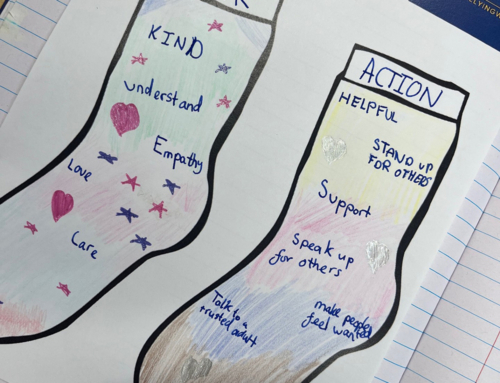 K
KIND
understand
Empathy
Love
Care
ACTION
HELPFUL
STAND UP
FOR OTHERS
Support
Speak up
for others
Talk to a
trusted adult
make people
feel wanted